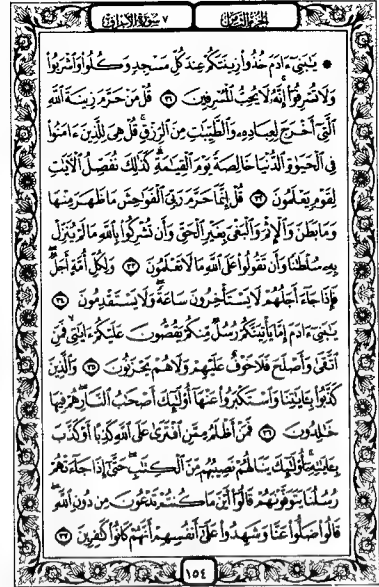 الجزء الثامن ٧ سورة الأعراف
۞ يَٰبَنِىٓ ءَادَمَ خُذُوا۟ زِينَتَكُمْ عِندَ كُلِّ مَسْجِدٍ وَكُلُوا۟ وَٱشْرَبُوا۟
وَلَا تُسْرِفُوٓا۟ إِنَّهُۥ لَا يُحِبُّ ٱلْمُسْرِفِينَ ٣١ قُلْ مَنْ حَرَّمَ زِينَةَ ٱللَّهِ
ٱلَّتِىٓ أَخْرَجَ لِعِبَادِهِۦ وَٱلطَّيِّبَٰتِ مِنَ ٱلرِّزْقِ ۚ قُلْ هِىَ لِلَّذِينَ ءَامَنُوا۟
فِى ٱلْحَيَوٰةِ ٱلدُّنْيَا خَالِصَةً يَوْمَ ٱلْقِيَٰمَةِ ۗ كَذَٰلِكَ نُفَصِّلُ ٱلْءَايَٰتِ
لِقَوْمٍ يَعْلَمُونَ ٣٢ قُلْ إِنَّمَا حَرَّمَ رَبِّىَ ٱلْفَوَٰحِشَ مَا ظَهَرَ مِنْهَا
وَمَا بَطَنَ وَٱلْإِثْمَ وَٱلْبَغْىَ بِغَيْرِ ٱلْحَقِّ وَأَن تُشْرِكُوا۟ بِٱللَّهِ مَا لَمْ يُنَزِّلْ
بِهِۦ سُلْطَٰنًا وَأَن تَقُولُوا۟ عَلَى ٱللَّهِ مَا لَا تَعْلَمُونَ ٣٣ وَلِكُلِّ أُمَّةٍ أَجَلٌ ۖ
فَإِذَا جَآءَ أَجَلُهُمْ لَا يَسْتَأْخِرُونَ سَاعَةً ۖ وَلَا يَسْتَقْدِمُونَ ٣٤
يَٰبَنِىٓ ءَادَمَ إِمَّا يَأْتِيَنَّكُمْ رُسُلٌ مِّنكُمْ يَقُصُّونَ عَلَيْكُمْ ءَايَٰتِى ۙ فَمَنِ
ٱتَّقَىٰ وَأَصْلَحَ فَلَا خَوْفٌ عَلَيْهِمْ وَلَا هُمْ يَحْزَنُونَ ٣٥ وَٱلَّذِينَ
كَذَّبُوا۟ بِـَٔايَٰتِنَا وَٱسْتَكْبَرُوا۟ عَنْهَآ أُو۟لَٰٓئِكَ أَصْحَٰبُ ٱلنَّارِ ۖ هُمْ فِيهَا
خَٰلِدُونَ ٣٦ فَمَنْ أَظْلَمُ مِمَّنِ ٱفْتَرَىٰ عَلَى ٱللَّهِ كَذِبًا أَوْ كَذَّبَ
بِـَٔايَٰتِهِۦٓ ۚ أُو۟لَٰٓئِكَ يَنَالُهُمْ نَصِيبُهُم مِّنَ ٱلْكِتَٰبِ ۖ حَتَّىٰٓ إِذَا جَآءَتْهُمْ
رُسُلُنَا يَتَوَفَّوْنَهُمْ قَالُوٓا۟ أَيْنَ مَا كُنتُمْ تَدْعُونَ مِن دُونِ ٱللَّهِ ۖ
قَالُوا۟ ضَلُّوا۟ عَنَّا وَشَهِدُوا۟ عَلَىٰٓ أَنفُسِهِمْ أَنَّهُمْ كَانُوا۟ كَٰفِرِينَ ٣٧
١٥٤